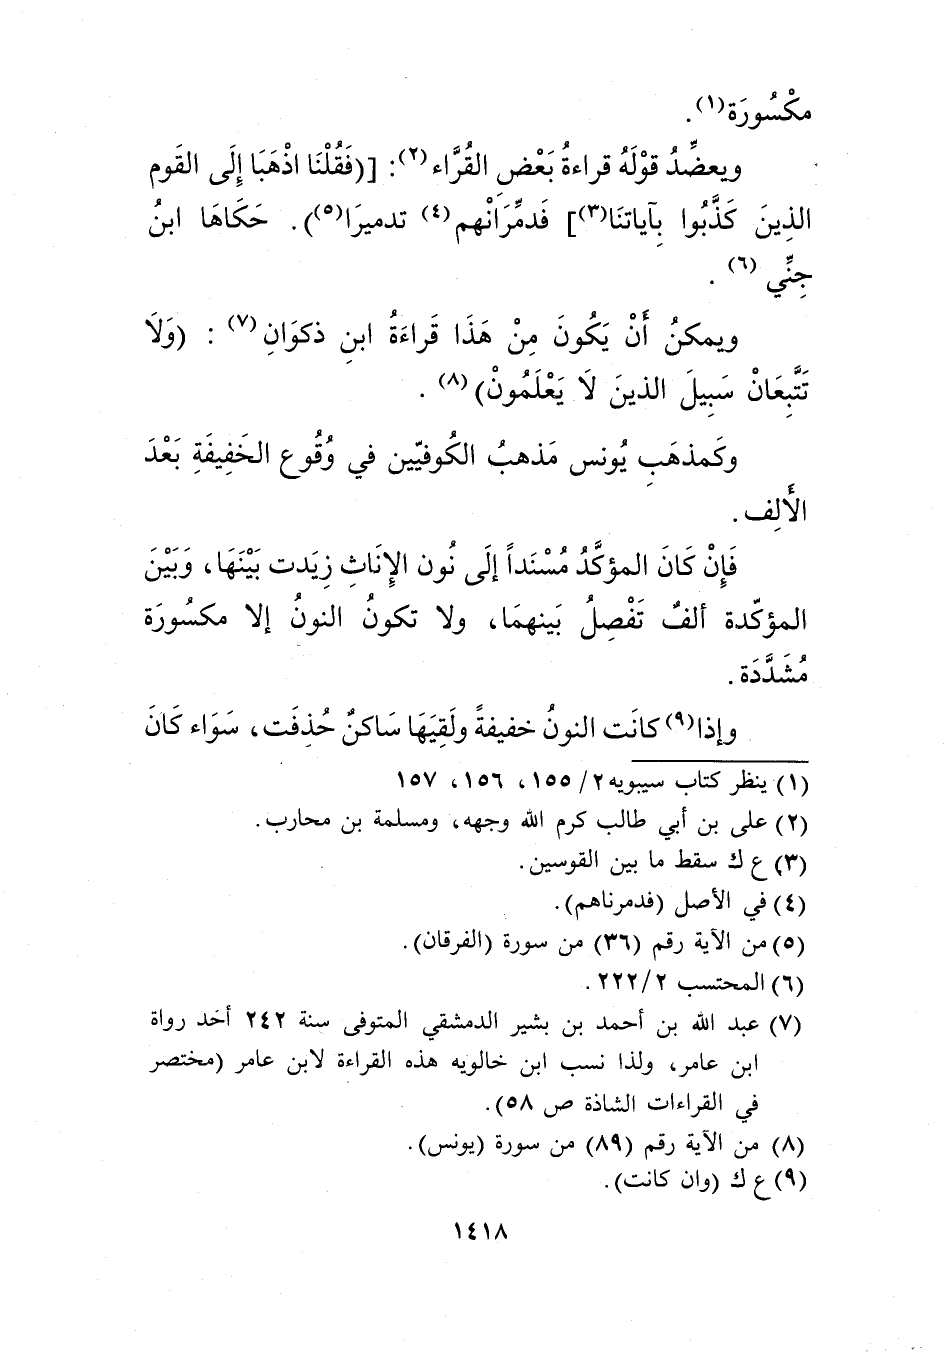 مكْسُورَة(١).
ويعضِّدُ قوْلَهُ قراءةُ بَعْضِ القُرَّاء(٢): [(فَقُلْنَا اذْهَبَا إِلَى القَوم
الذِينَ كَذَّبُوا بِآياتنَا(٣)] فَدمِّرَانْهم(٤) تدميرَا(٥)). حَكَاهَا ابنُ
جِنِّي (٦) .
ويمكنُ أَنْ يَكُونَ مِنْ هَذَا قَراءَةُ ابنِ ذكوَانِ(٧) : (وَلَا
تَتَّبِعَانْ سَبِيلَ الذينَ لَا يَعْلَمُونْ)(٨) .
وكَمذهَبِ يُونس مَذهبُ الكُوفيّين في وُقُوع الخَفِيفَةِ بَعْدَ
الأَلِف.
فَإِنْ كَانَ المؤكَّدُ مُسْنَداً إلَى نُون الإِنَاثِ زِيَدت بَيْنَهَا، وَبَيْنَ
المؤكّدة ألفٌ تَفْصِلُ بَينهمَا، ولا تكونُ النونُ إلا مكسُورَة
مُشَدَّدَة.
وإذا(٩) كانَت النونُ خفيفةً ولَقِيَهَا سَاكنٌ حُذِفَت، سَوَاء كَانَ
(١) ينظر كتاب سيبويه ٢/ ١٥٥، ١٥٦، ١٥٧
(٢) على بن أبي طالب كرم الله وجهه، ومسلمة بن محارب.
(٣) ع ك سقط ما بين القوسين.
(٤) في الأصل (فدمرناهم).
(٥) من الآية رقم (٣٦) من سورة (الفرقان).
(٦) المحتسب ٢/ ٢٢٢.
(٧) عبد الله بن أحمد بن بشير الدمشقي المتوفى سنة ٢٤٢ أحد رواة
ابن عامر، ولذا نسب ابن خالويه هذه القراءة لابن عامر (مختصر
في القراءات الشاذة ص ٥٨).
(٨) من الآية رقم (٨٩) من سورة (يونس).
(٩) ع ك (وان كانت).
١٤١٨